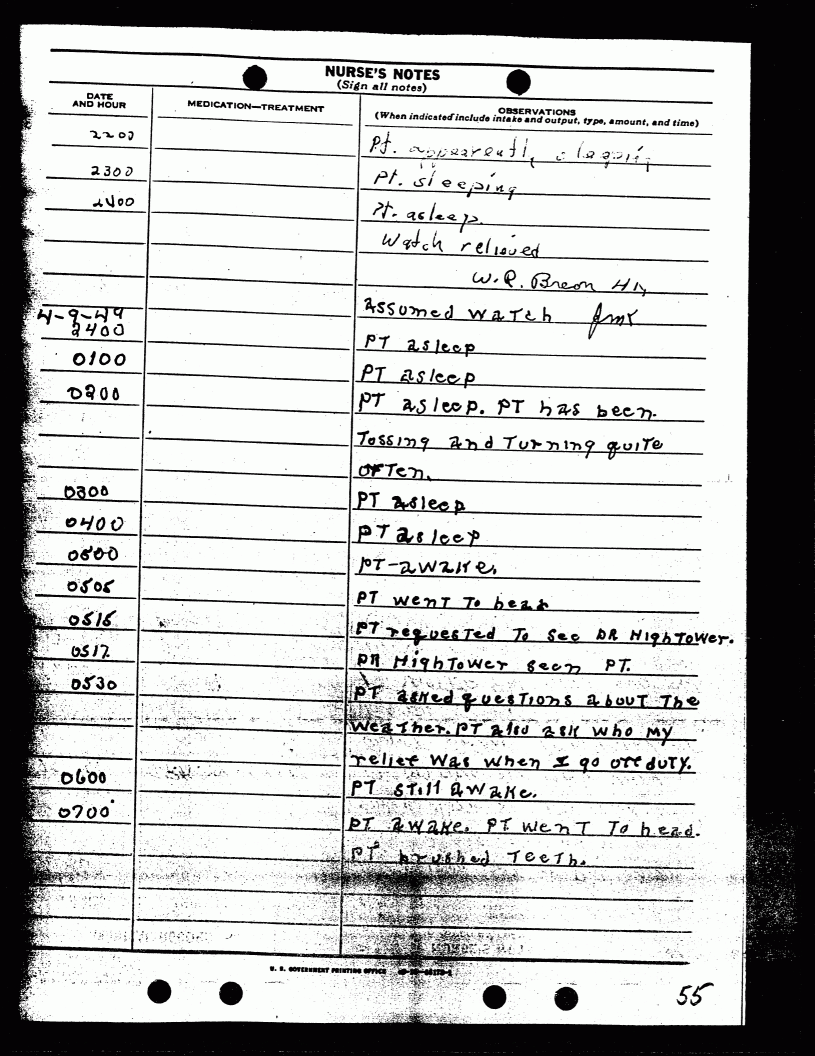 NURSE'S NOTES
(Sign all notes)
DATE AND HOUR
MEDICATION—TREATMENT
OBSERVATIONS
(When indicated include intake and output, type, amount, and time)
2200 Pt. apparently sleeping
2300 Pt. sleeping
2400 Pt. asleep.
Watch relieved
W.R. Breon HN
Assumed watch
4-9-49
2400 PT asleep
0100 PT asleep
0200 PT asleep. PT has been.
Tossing and Turning quite
often.
0300 PT asleep
0400 PT asleep
0500 PT-awake.
0505 PT went To head
0515 PT requested To see DR HighTower.
0517 DR HighTower seen PT.
0530 PT asked questions about The
Weather. PT also ask who my
relief was when I go off duty.
0600 PT still awake.
0700 PT awake. PT went To head.
PT brushed Teeth.
U. S. GOVERNMENT PRINTING OFFICE
55